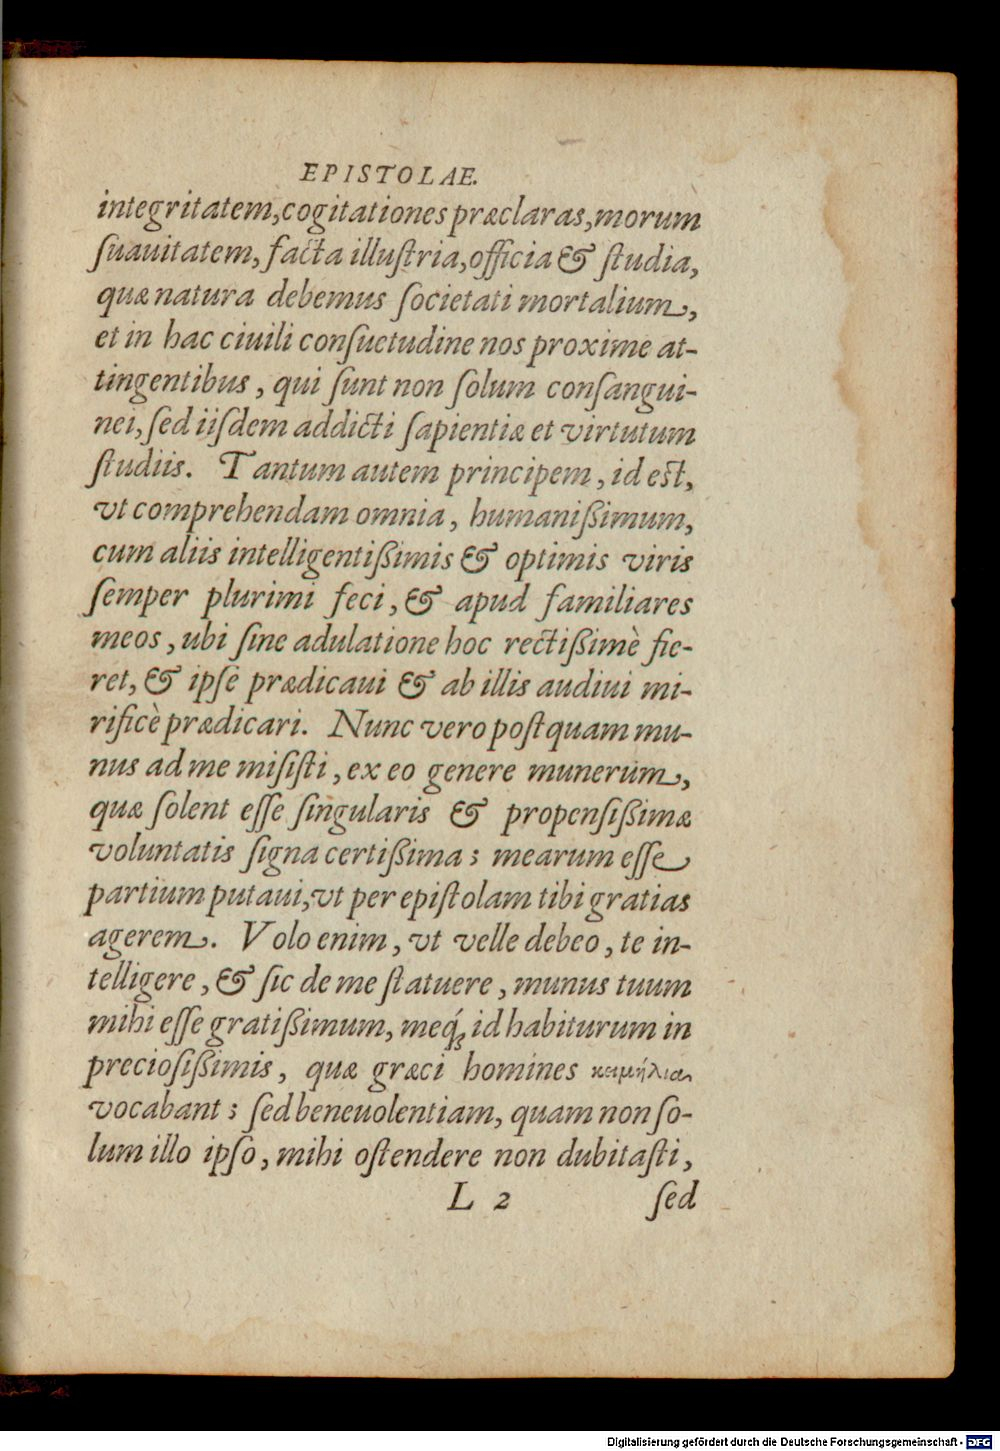 EPISTOLAE.
integritatem, cogitationes præclaras, morum
ſuauitatem, facta illuſtria, officia & ſtudia,
quæ natura debemus ſocietati mortalium,
et in hac ciuili conſuetudine nos proxime at-
tingentibus, qui ſunt non ſolum conſangui-
nei, ſed iiſdem addicti ſapientiæ et virtutum
ſtudiis. Tantum autem principem, id est,
vt comprehendam omnia, humanißimum,
cum aliis intelligentißimis & optimis viris
ſemper plurimi feci, & apud familiares
meos, ubi ſine adulatione hoc rectißimè fie-
ret, & ipſe prædicaui & ab illis audiui mi-
rificè prædicari. Nunc vero poſtquam mu-
nus ad me miſiſti, ex eo genere munerum,
quæ ſolent eſſe ſingularis & propenſißimæ
voluntatis ſigna certißima; mearum eſſe
partium putaui, vt per epiſtolam tibi gratias
agerem. Volo enim, vt velle debeo, te in-
telligere, & ſic de me ſtatuere, munus tuum
mihi eſſe gratißimum, meq́ꝫ id habiturum in
precioſißimis, quæ græci homines κειμήλια
vocabant; ſed beneuolentiam, quam non ſo-
lum illo ipſo, mihi oſtendere non dubitaſti,
L 2 ſed
Digitalisierung gefördert durch die Deutsche Forschungsgemeinschaft - DFG